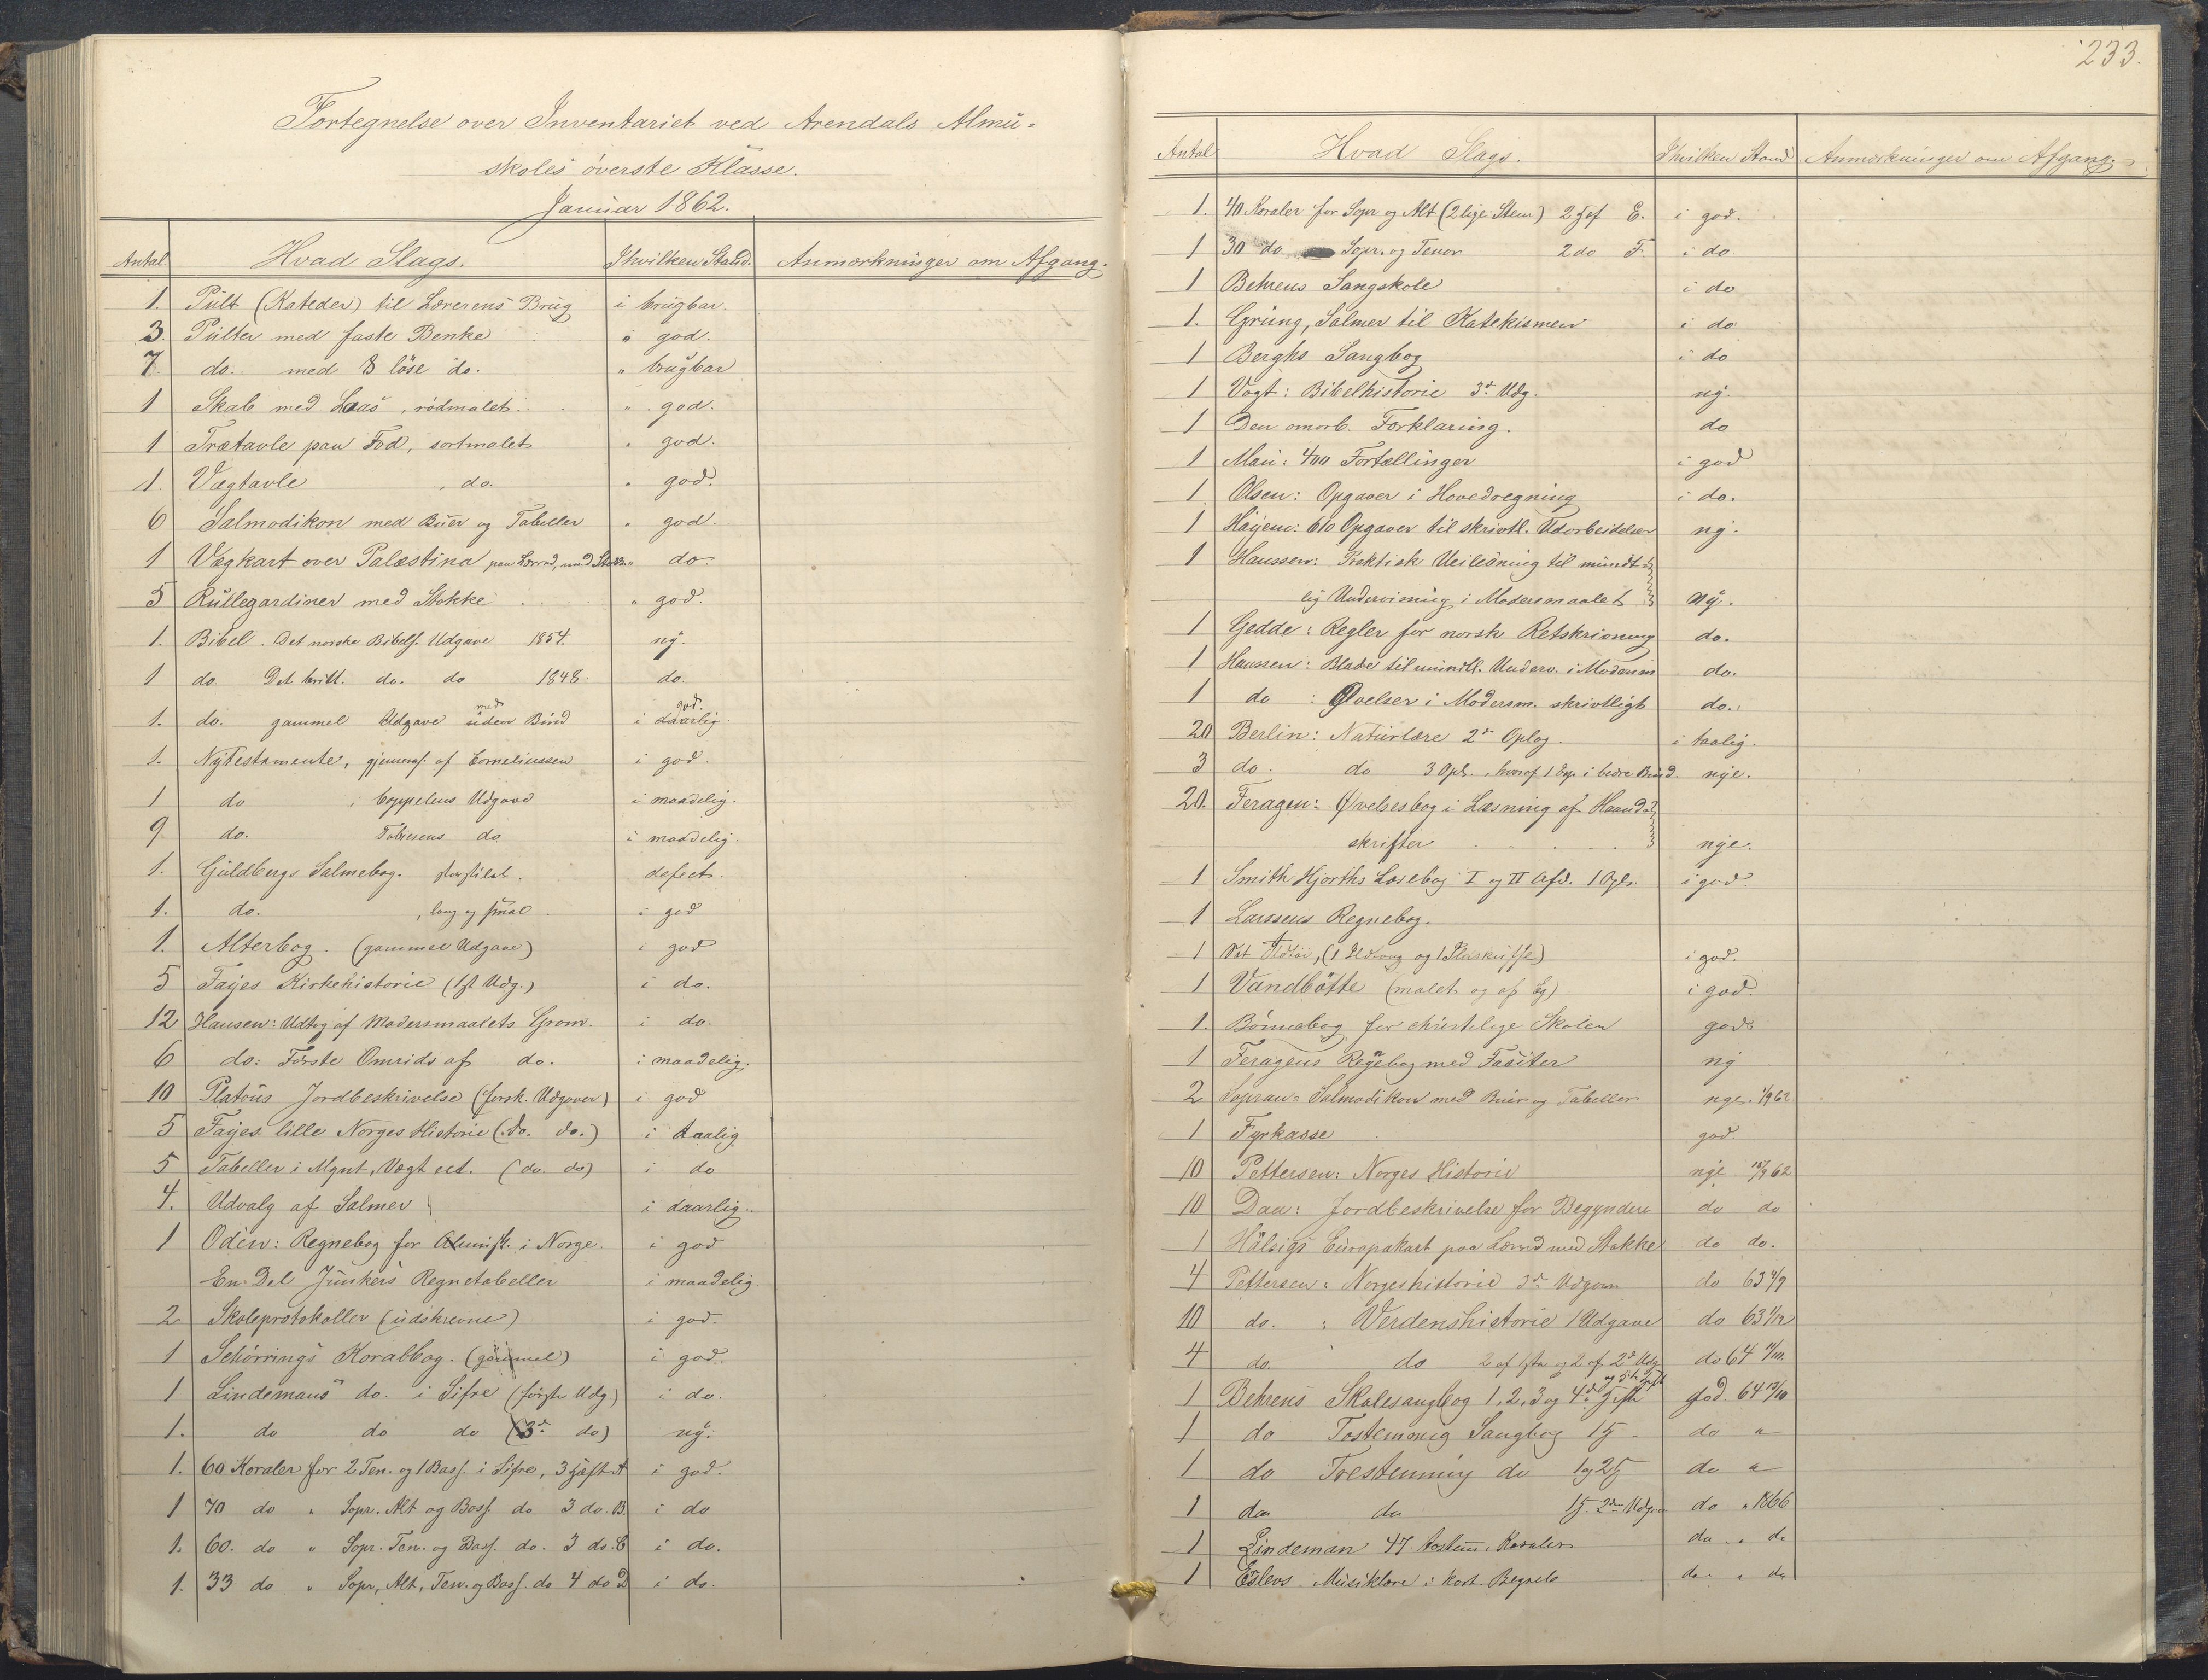 Fortegnelse over Inventariet ved Arendals Almu=
skoles överste Klasse.
Januar 1862.
Antal. Hvad Slags. I hvilken Stand. Anmærkninger om Afgang.
1. Pült (Kateder) til Lærerens Brug i brugbar.
3. Pülter med faste Benke " god.
7. do. med 8 löse do. " brugbar
1 Skab med Laas, rödmalet. " god.
1 Trætavle paa Fod, sortmalet " god.
1. Vægtavle , do. " god.
6 Salmodikon med Buer og Tabeller " god.
1 Vægkart over Palæstina paa Lærred, med Stokke " do.
5 Rüllegardiner med Stokke " god.
1. Bibel. Det norske Bibels. Udgave 1854. ny.
1 do. Det britt. do. do 1848. do.
1. do. gammel Udgave med uden Bind i god. daarlig.
1. Ny Testamente, gjennems. af Corneliussen i god.
1 do , Coppelens Udgave i maadelig.
9 do. do i maadelig.
1. Guldbergs Salmebog. storstilet. defect.
1. do. , lang og smal. i god
1. Alterbog. (gammel Udgave) i god
5 Fayes Kirkehistorie (1st Udg.) i do.
12 Hansen: Udtog af Modersmaalets Gram. i do.
6 do: Förste Omrids af do. i maadelig.
10 Platous Jordbeskrivelse (forsk. Udgaver) i god
5 Fayes lille Norges Historie (do. do.) i taalig
5 Tabeller i Mynt, Vægt ect. (do. do) i do
4. Udvalg af Salmer i daarlig.
1 Odén: Regnebog for Almusk. i Norge. i god
En Del Junkers Regnetabeller i maadelig.
2 Skoleprotokoller (udskrevne) i god.
1 Schörrings Koralbog. (gammel) i god.
1 Lindemans do. i Sifre (förste Udg.) i do.
1. do do do (3de do) ny.
1. 60 Koraler for 2 Ten. og 1 Bass. i Sifre, 3 Hæft. A i god.
1 70 do " Sopr. Alt og Bass. do 3 do. B. i do
1. 60. do " Sopr. Ten. og Bass. do. 3 do. C i do.
1. 33 do " Sopr, Alt, Ten. og Bass. do 4 do D i do.
233.
Antal Hvad Slags. I hvilken Stand Anmærkninger om Afgang.
1. 40 Koraler for Sopr og Alt (2 lige Stem) 2 Hef E. i god.
1 30 do Sopr. og Tenor 2 do F. i do
1 Behrens Sangskole i do
1. Grüng, Salmer til Katekismen i do
1 Berghs Sangbog i do
1 Vogt: Bibelhistorie 3de Udg. ny.
1 Den omarb. Forklaring. do
1 Mau: 400 Fortællinger i god
1. Olsen: Opgaver i Hovedregning i do.
1 610 Opgaver til skrivtl. Udarbeidelser ny.
1 Hanssen: Praktisk Veiledning til mundt=
lig Undervisning i Modersmaalet ny.
1 Gedde: Regler for norsk Retskrivning do.
1 Hanssen: Blade til mundtl. Underv. i Modersm do.
1 do : Øvelser i Modersm. skrivtligt do.
20 Berlin: Naturlære 2det Oplag. i taalig.
3 do. do 3 Opl., hvoraf 1 Exp. i bedre Bind. nye.
20. Feragen: Øvelsesbog i Læsning af Haand=
skrifter nye.
1 Smith Hjorths Læsebog I og II Afd. i god.
1 Larssens Regnebog.
1 Et Ildtöi, (1 Ildtang og 1 Ildskuffe) i god.
1 Vandbötte (malet og af Eg) i god.
1. Bönnebog for christelige Skoler god.
1 Feragens Regnebog med Fasiter ny
2 Sopran=Salmodikon med Buer og Tabeller nye. 1/9 62
1 Fyrkasse god.
10 Pettersen: Norges Historie nye 15/9 62
10 Dau: Jordbeskrivelse for Begyndere do do
1 Europakart paa Lærred med Stokke do do.
4 Pettersen: Norgeshistorie 3de Udgave do 63
10 do. : Verdenshistorie 1 Udgave do 63
4 do. do 2 af 1ste og 2 af 2d Udg do 64
1 Behrens Skolesangbog 1, 2, 3 og 4de Hefte god. 64
1 do Tostemmig Sangbog 1 H. do
1 do Trestemmig do 1 og 2 H do
1 do do 1 H. 2den Udgave do 1866
1 Lindeman 47 Koraler do " do
1 Musiklære i kort Begreb do " do